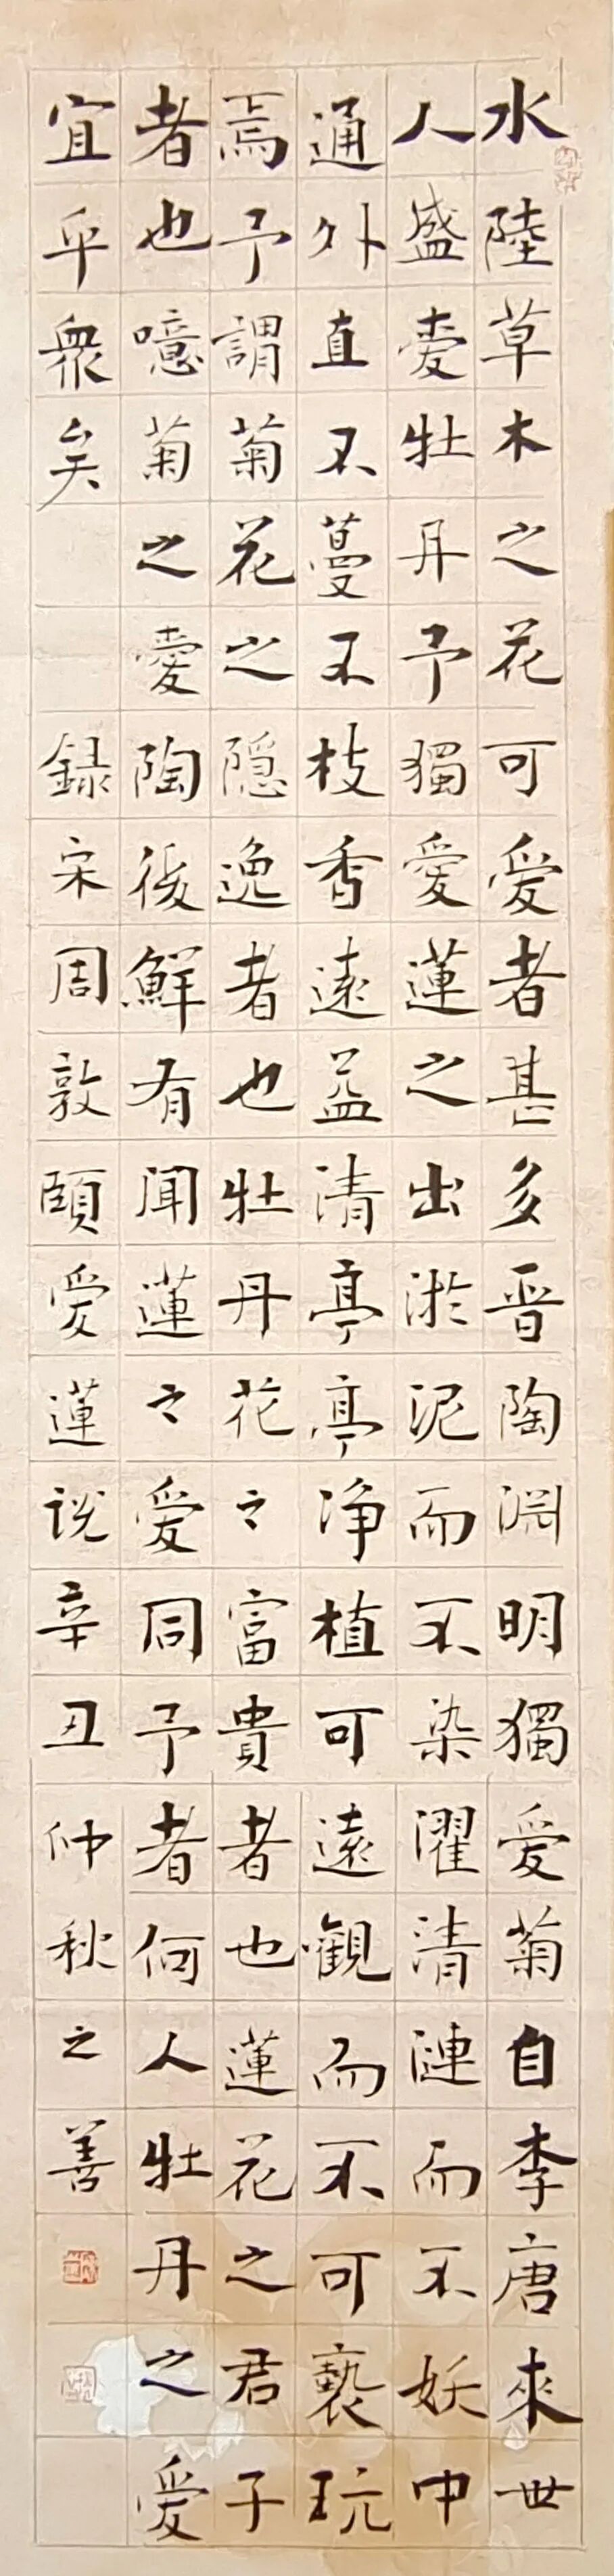 水陸草木之花可愛者甚多晋陶淵明獨愛菊自李唐來世
人盛愛牡丹予獨愛蓮之出淤泥而不染濯清漣而不妖中
通外直不蔓不枝香遠益清亭亭净植可遠觀而不可褻玩
焉予謂菊花之隠逸者也牡丹花之富貴者也蓮花之君子
者也噫菊之愛陶後鮮有聞蓮之愛同予者何人牡丹之愛
宜乎衆矣 録宋周敦頤愛蓮説辛丑仲秋之善